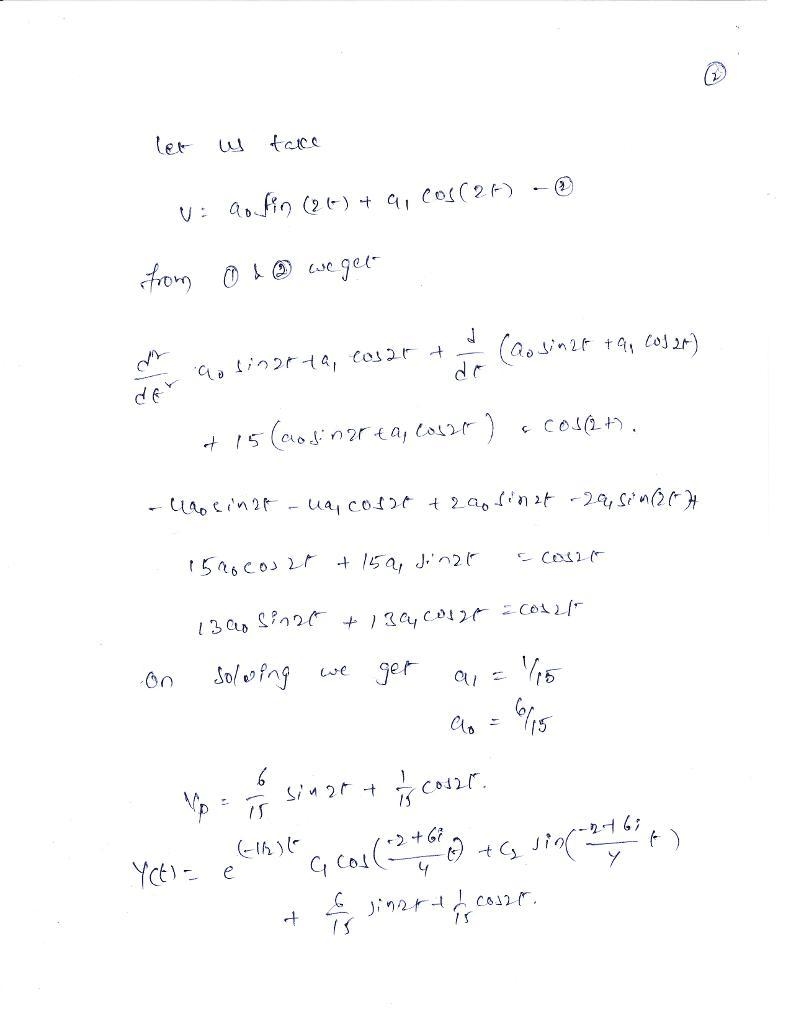 ②
let us take
V = a₀ sin (2t) + a₁ cos(2t) - ②
from ① & ② we get
d²/dt² a₀ sin2t + a₁ cos2t + d/dt (a₀ sin2t + a₁ cos2t)
+ 15 (a₀ sin2t + a₁ cos2t) = cos(2t).
- 4a₀ sin2t - 4a₁ cos2t + 2a₀ sin2t - 2a₁ sin(2t) +
15a₀ cos2t + 15a₁ sin2t = cos2t
13a₀ sin2t + 13a₁ cos2t = cos2t
On solving we get a₁ = 1/15
a₀ = 6/15
Vp = 6/15 sin2t + 1/15 cos2t.
Y(t) = e^(-1/2)t C₁ cos(-2+6i/4 t) + C₂ sin(-2+6i/4 t)
+ 6/15 sin2t + 1/15 cos2t.